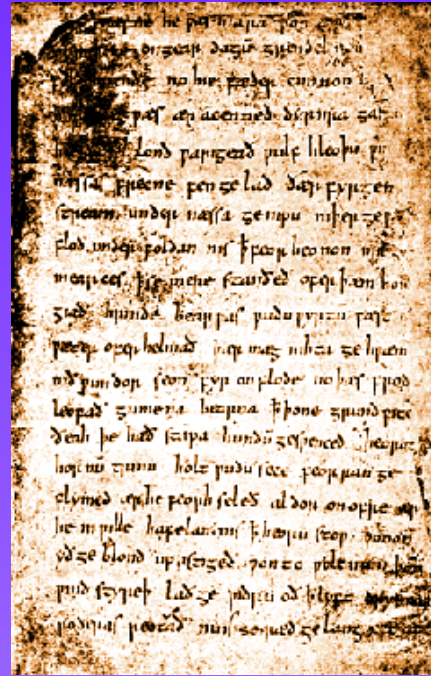 he wæs mara þon
on gear dagū grendel
no hie fæder cunnon
wæs ær acenned dyrnra gas
lond warigeað wulf hleoþu
næssas frecne fen gelad ðær fyrgen
stream under næssa genipu niþer ge
flod under foldan nis ꝥ feor heonon
mearces ꝥ se mere standeð ofer þæm hon
giað hrinde bearwas wudu wyrtū fæst
wæter ofer helmað þær mæg nihta ge hwæm
nið wundor seon fyr on flode no þæs frod
leofað gumena bearna ꝥ þone grund wite
ðeah þe hæð stapa hundū geswenced heorot
hornū trum holt wudu sece feorran ge
flymed ær he feorh seleð aldor on ofre ær
he in wille hafelan nis ꝥ heoru stow þonon
yð ge blond up astigeð won to wolcnum þon
wind styreþ lað ge widru oð ꝥ lyft
roderas reotað nu is se ræd gelang